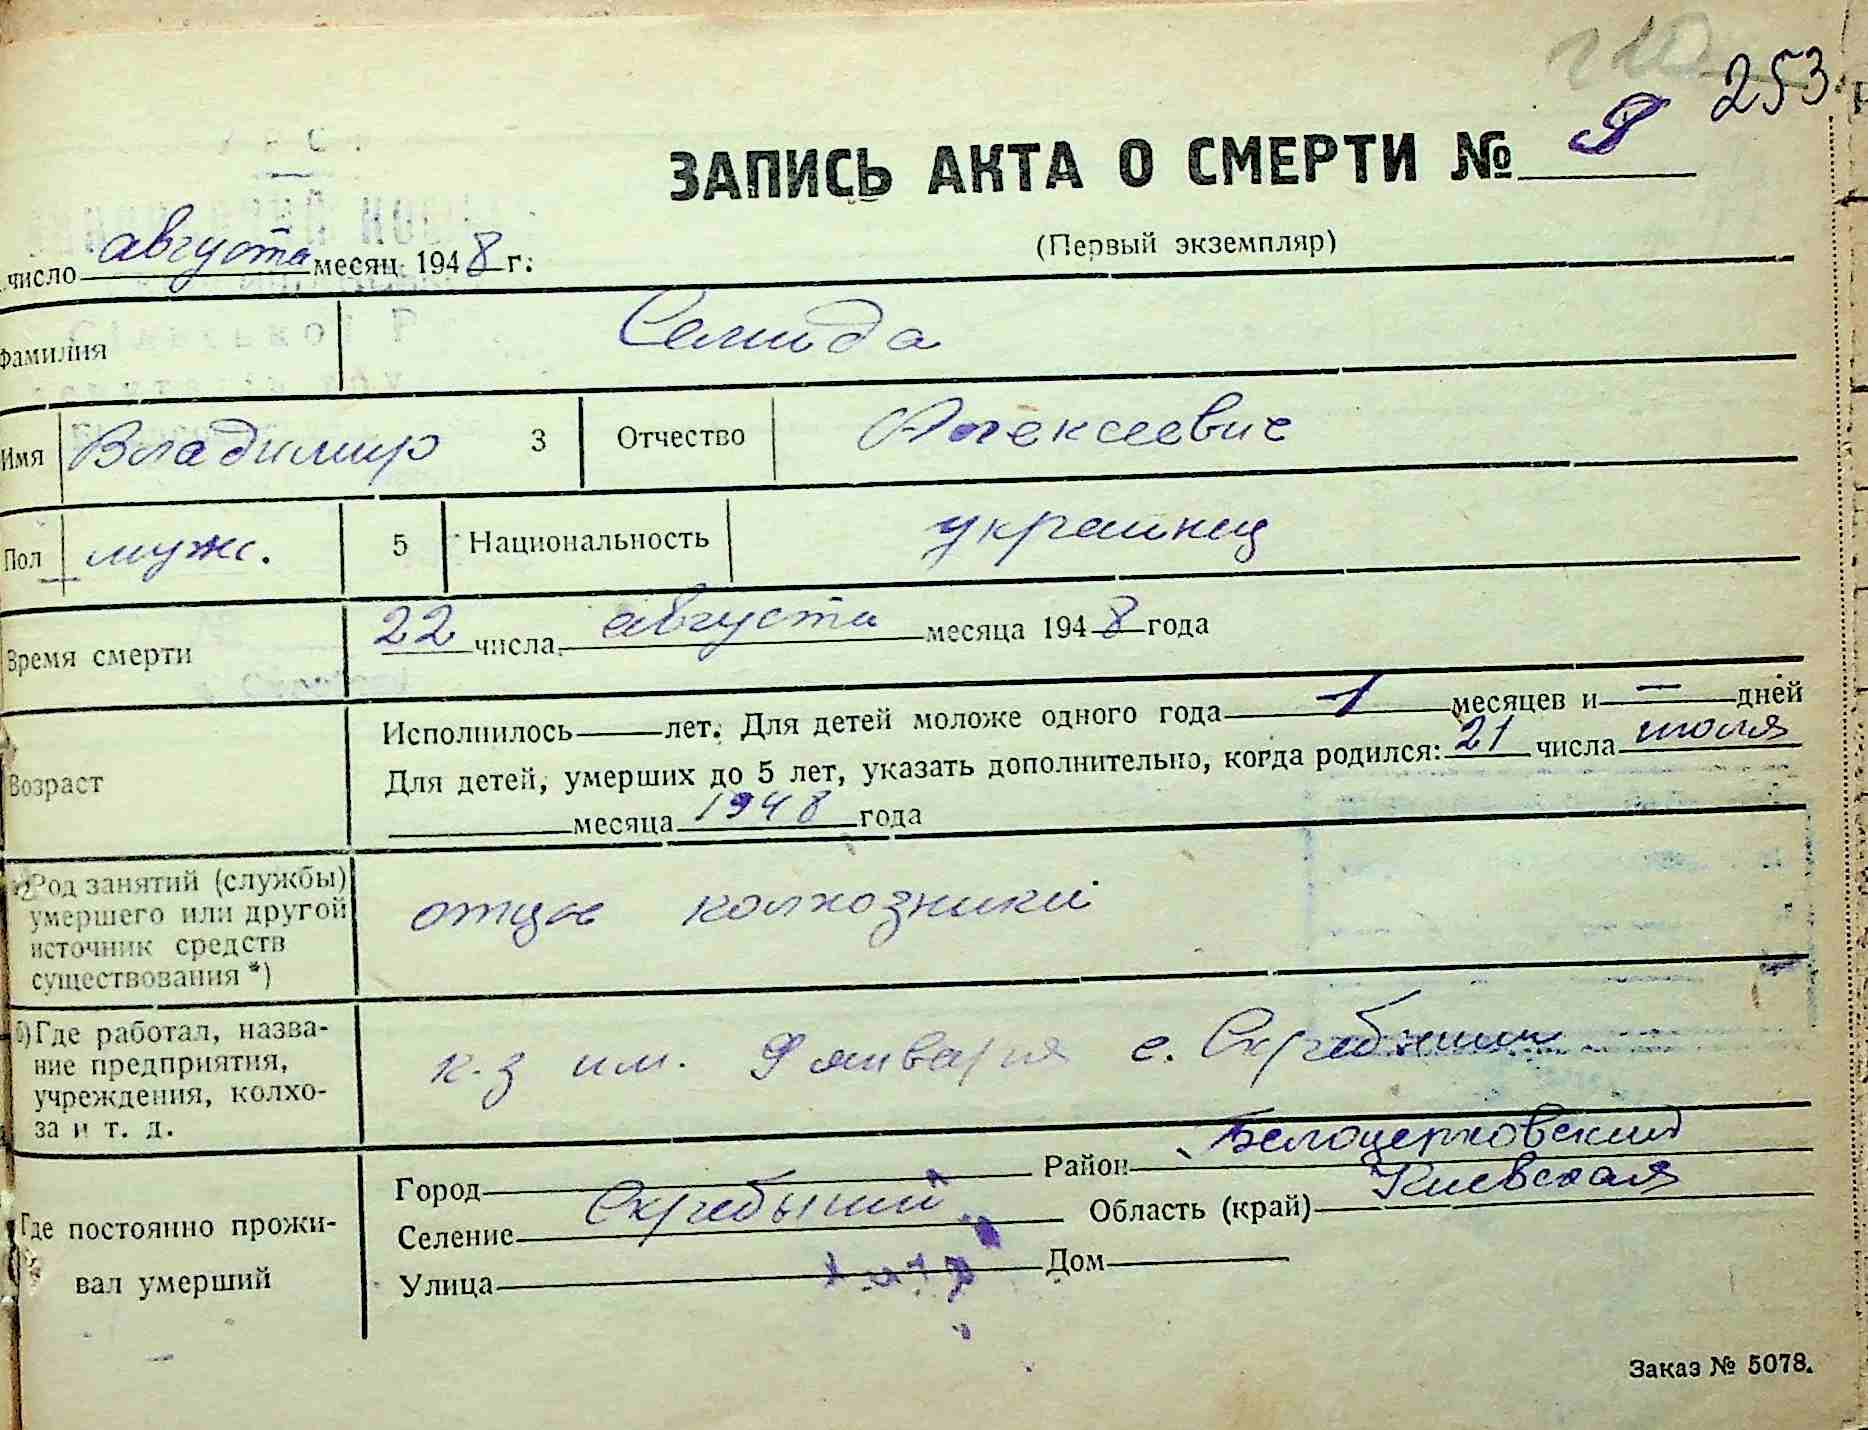 253
ЗАПИСЬ АКТА О СМЕРТИ № 9
(Первый экземпляр)
число августа месяц 1948 г.
Фамилия Семида
Имя Владимир 3 Отчество Алексеевич
Пол муж. 5 Национальность украинец
Время смерти 22 числа августа месяца 1948 года
Возраст
Исполнилось — лет. Для детей моложе одного года 1 месяцев и — дней
Для детей, умерших до 5 лет, указать дополнительно, когда родился: 21 числа июля
месяца 1948 года
Род занятий (службы)
умершего или другой
источник средств
существования *)
отцы колхозники
б) Где работал, назва-
ние предприятия,
учреждения, колхо-
за и т. д.
к-з им. 9 января с. Скребыши
Где постоянно прожи-
вал умерший
Город Район Белоцерковский
Селение Скребыши Область (край) Киевская
Улица Дом
Заказ № 5078.